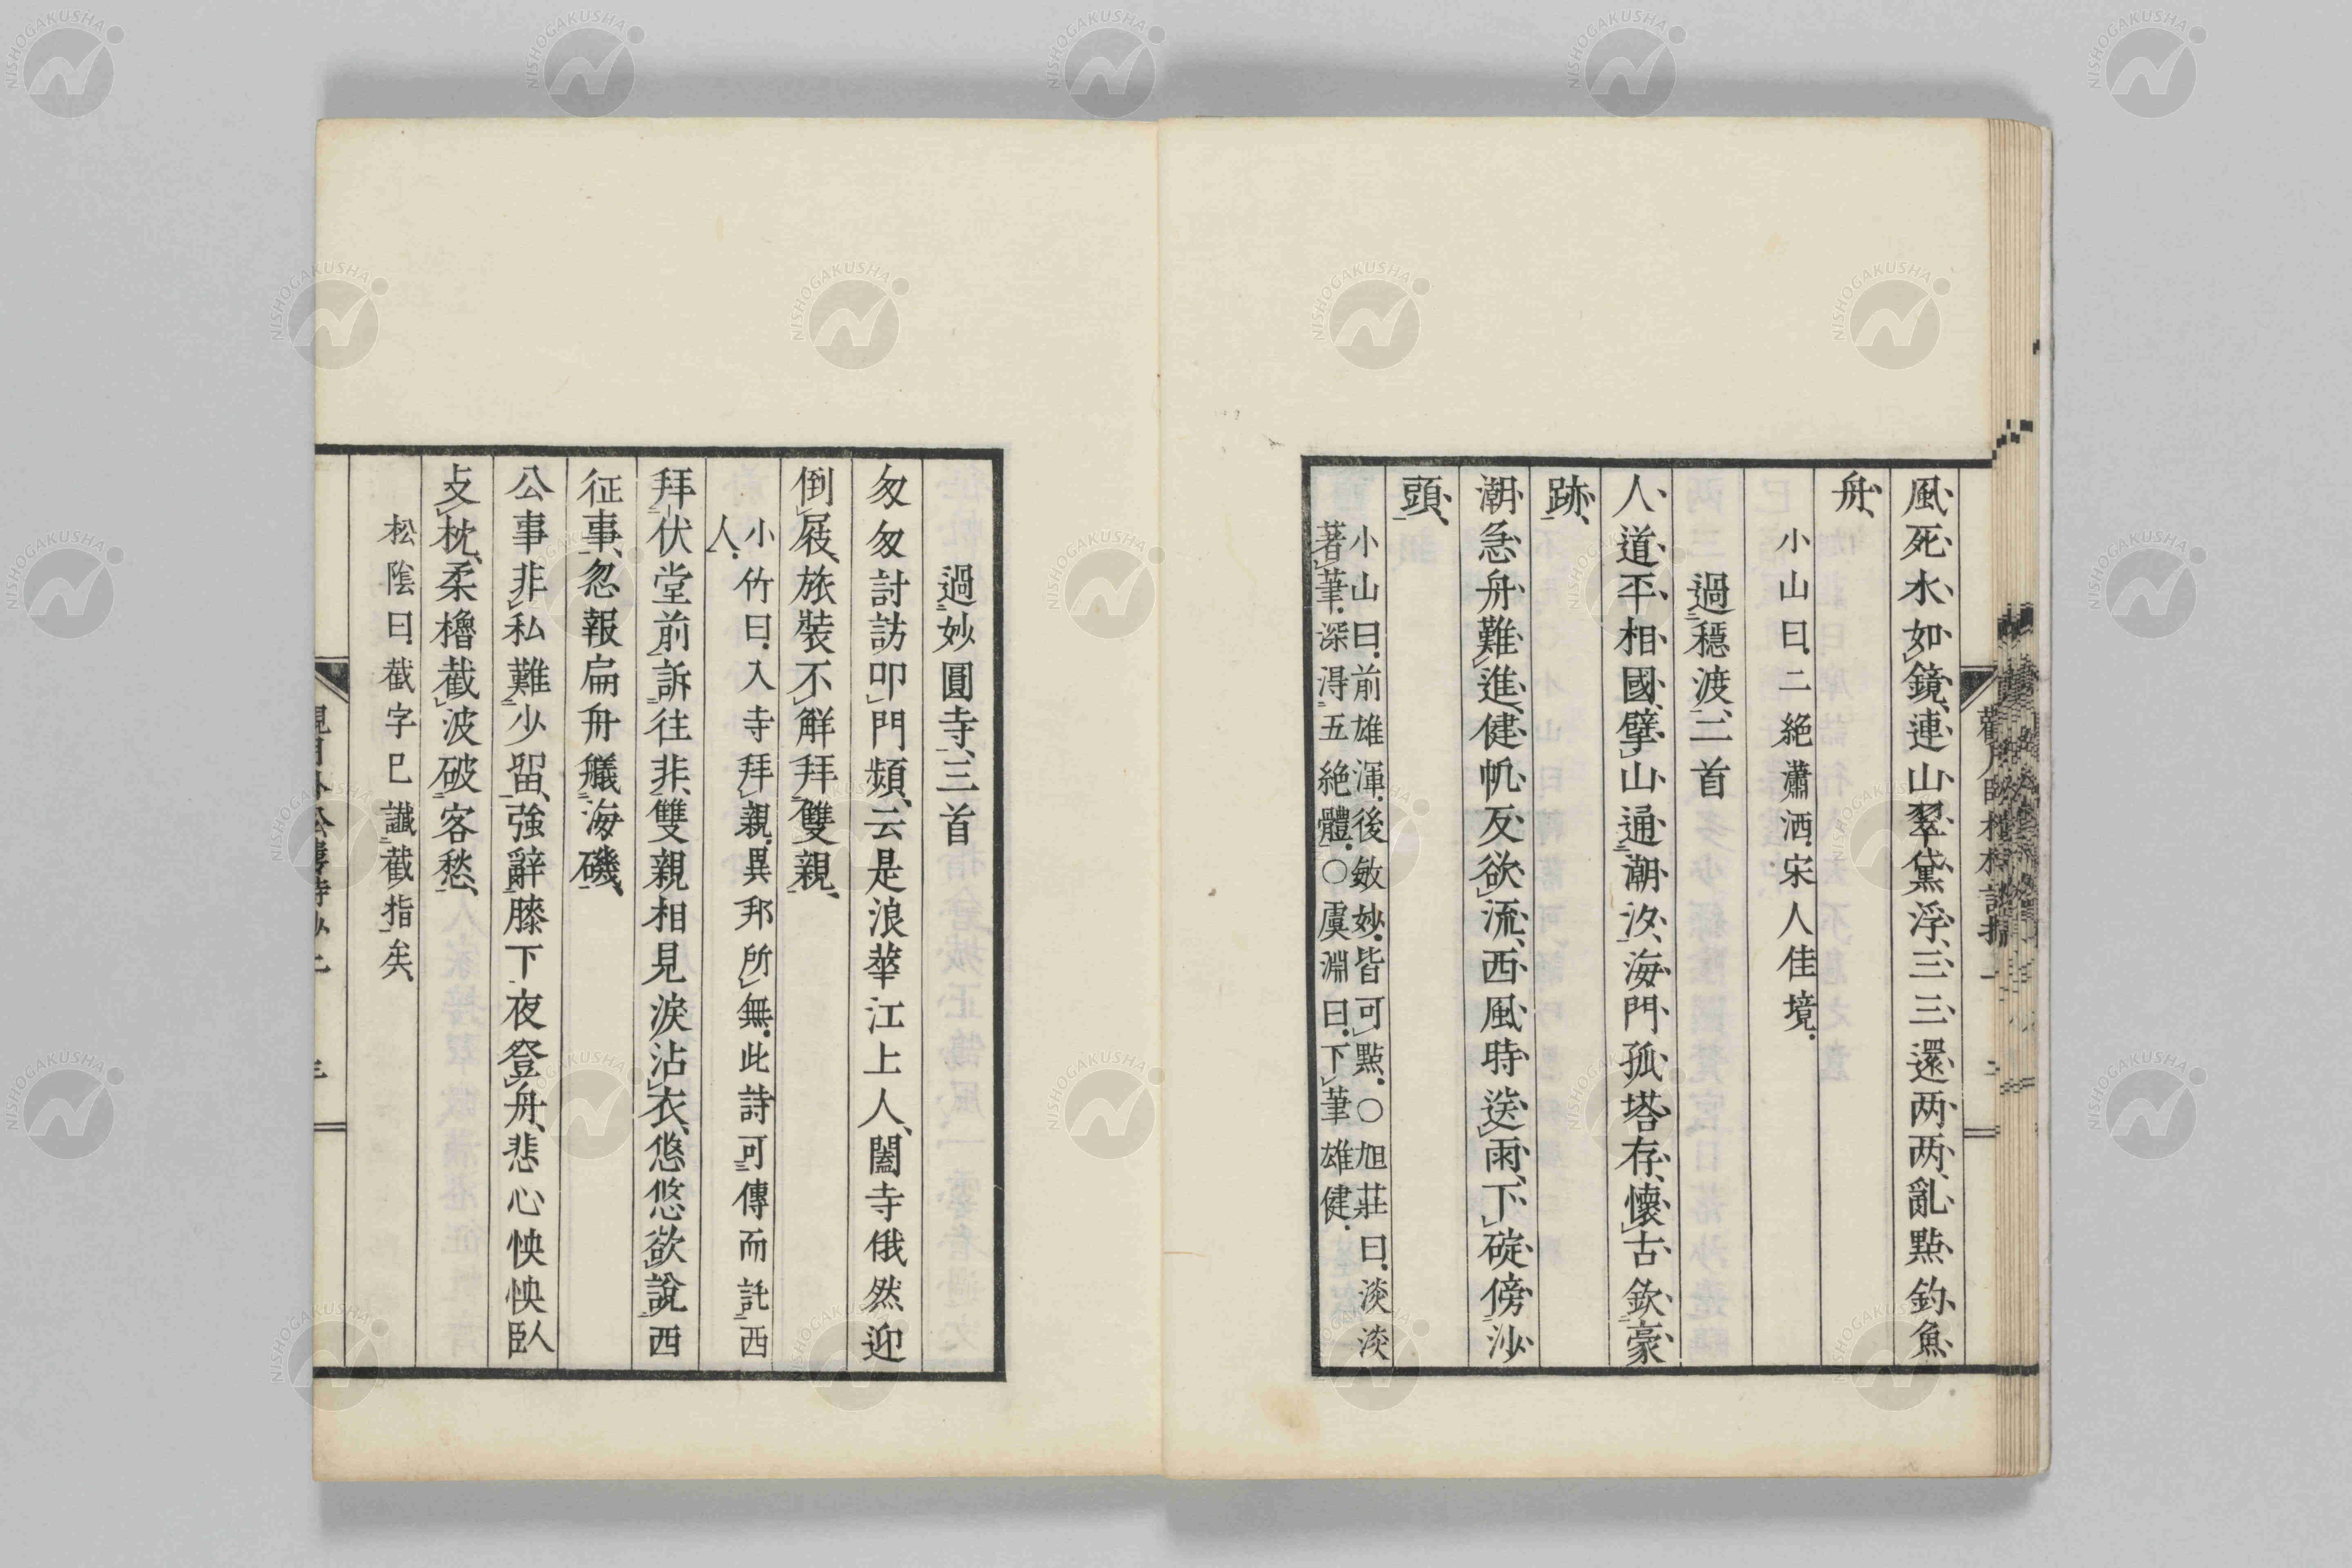 風死水如鏡、連山翠黛浮、三三還兩兩、亂點釣魚
舟、
小山曰、二絕瀟洒、宋人佳境、
過穩波、二首
人道平相國、擘山通潮汐、海門孤塔存、懷古欽豪
跡、
潮急舟難進、健帆反欲流、西風時送雨、下碇傍沙
頭、
小山曰、前雄渾、後敏妙、皆可點、○旭莊曰、淡淡
著筆、深得五絕體、○虞淵曰、下筆雄健、
過妙圓寺、三首
匆匆討訪叩門頻、云是浪華江上人、闔寺俄然迎
倒屐、旅裝不解拜雙親、
小竹曰、入寺拜親、異邦所無、此詩可傳而託西
人、
拜伏堂前訴往非、雙親相見淚沾衣、悠悠欲說西
征事、忽報扁舟艤海磯、
公事非私難少留、強辭膝下夜登舟、悲心怏怏臥
攴枕、柔櫓截波破客愁、
松陰曰、截字已讖截指矣、
NISHOGAKUSHA